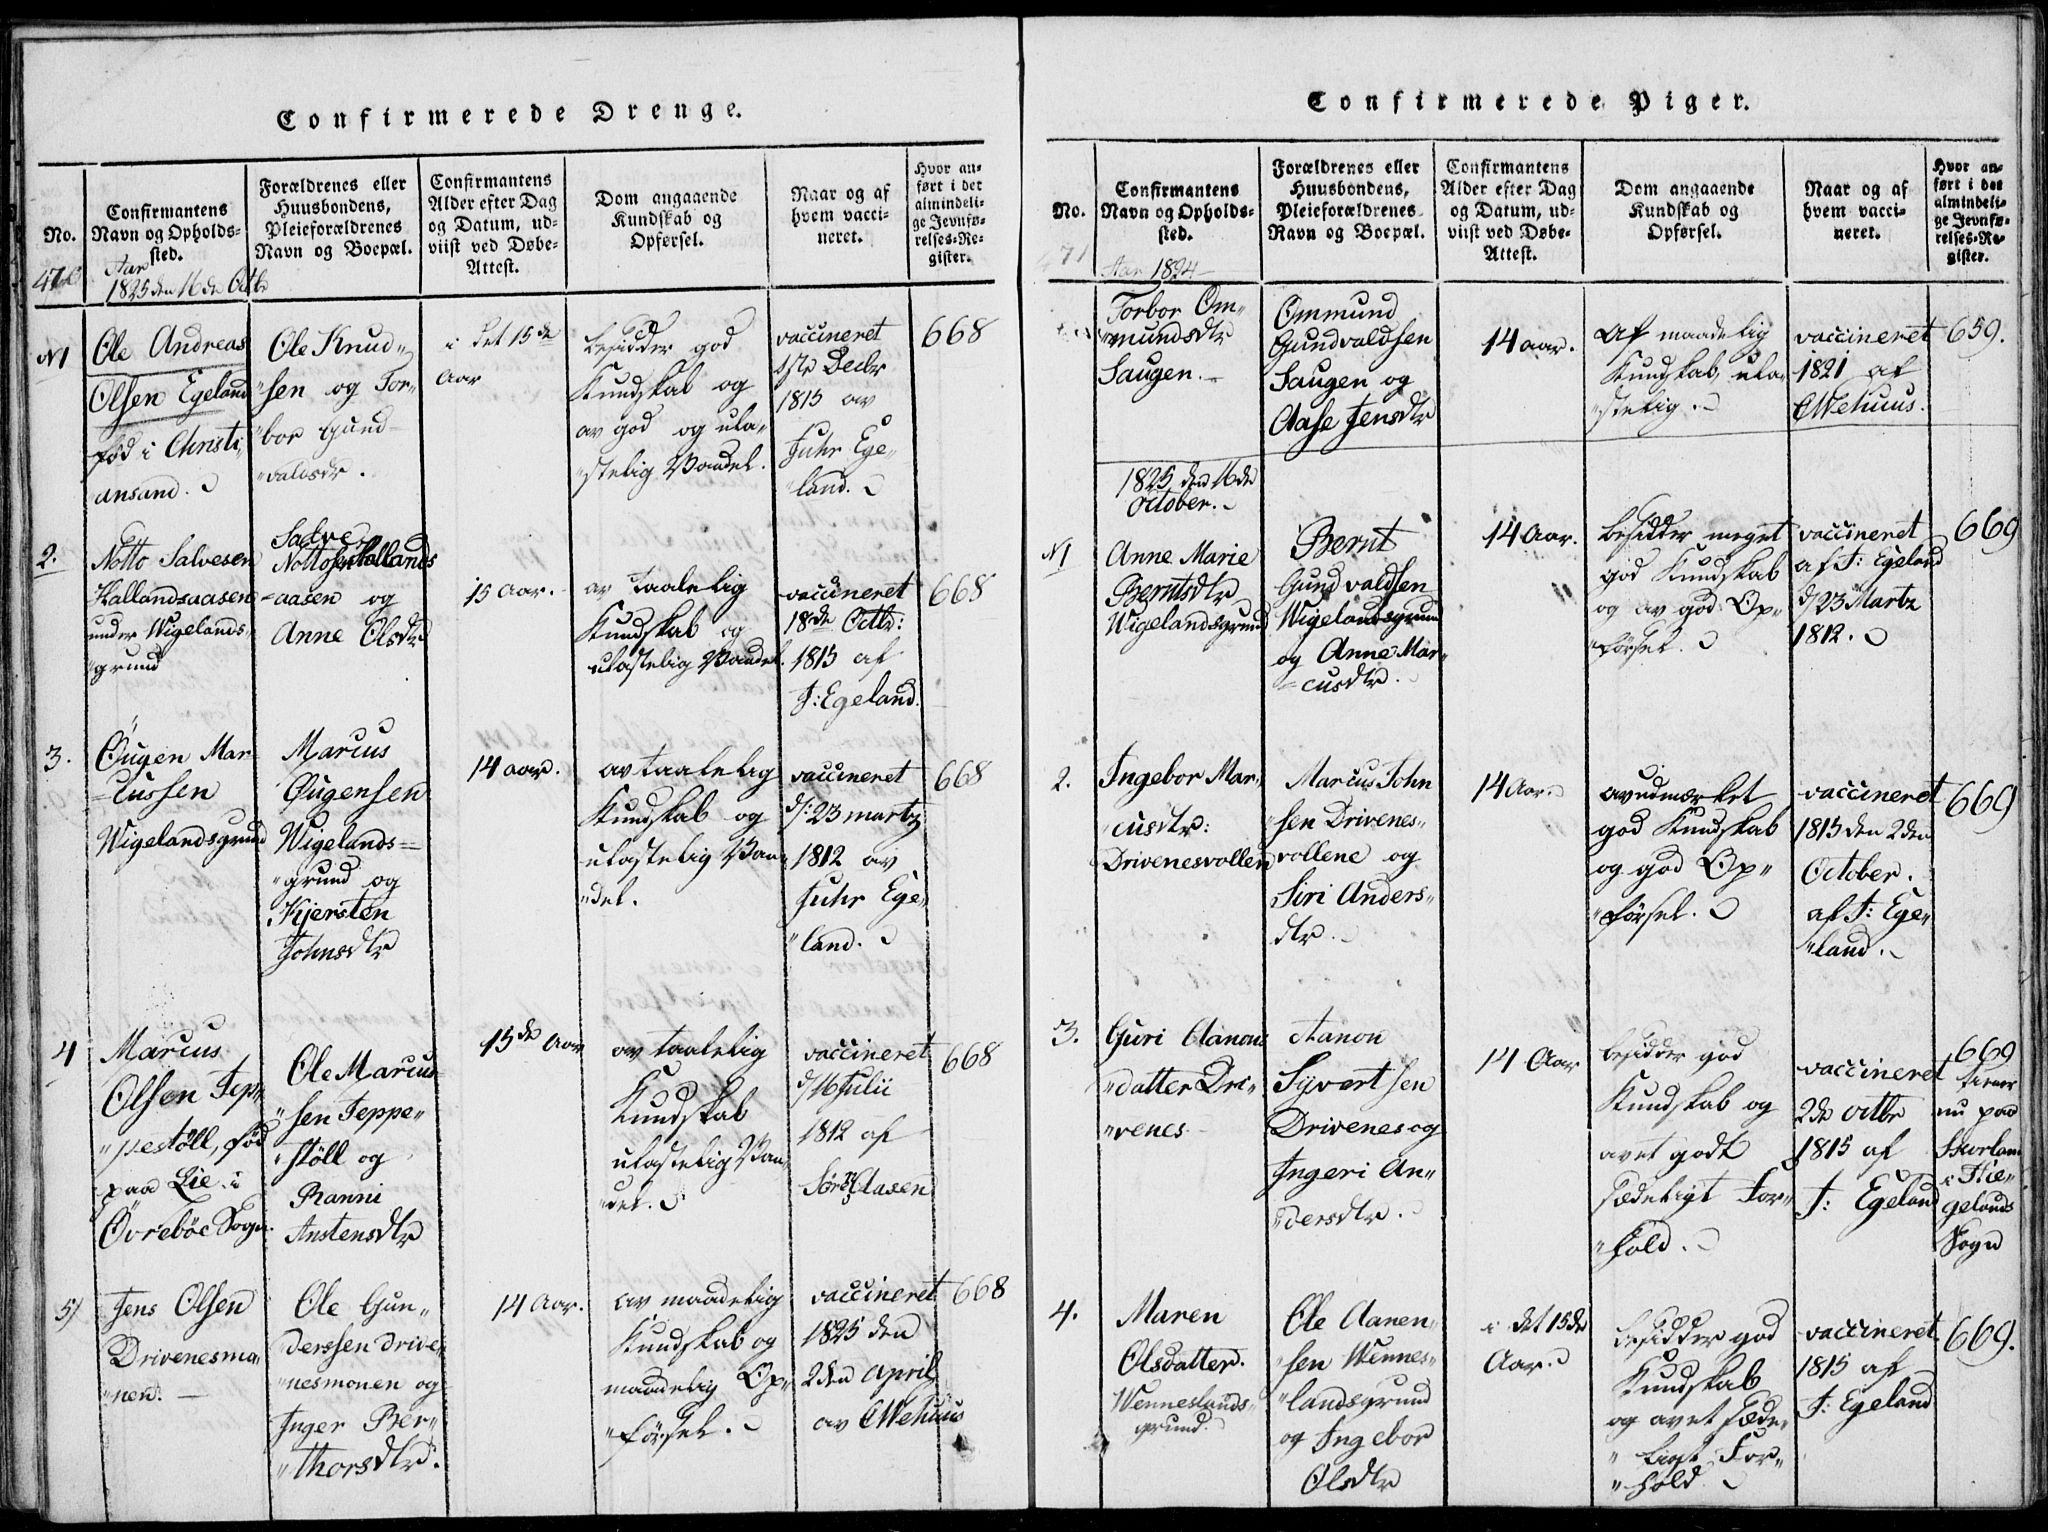 Confirmerede Drenge.
No.
Confirmantens
Navn og Opholds-
sted.
Forældrenes eller
Huusbondens,
Pleieforældrenes
Navn og Boepæl.
Confirmantens
Alder efter Dag
og Datum, ud-
viist ved Døbe-
Attest.
Dom angaaende
Kundskab og
Opførsel.
Naar og af
hvem vacci-
neret.
Hvor an-
ført i det
almindeli-
ge Jevnfø-
relses-Re-
gister.
Aar
1825 den 16de Octb
N1
Ole Andreas
Olsen Egeland
fød i Christi
ansand.
Ole Knud„
„sen og Tor„
„bor Gund
„valdsdr.
i det 15de
Aar
besidder god
Kundskab og
av god og ula„
„stelig Vandel.
vaccineret
1ste Decbr
1815 av
Juhr Ege„
„land.
668
2.
Notto Salvesen
Hallandsaasen
under Wigelands„
„grund
Salve
Nottosen Hallands
=aasen og
Anne Olsdtr
15 Aar.
av Taalelig
Kundskab og
ulastelig Vandel.
vaccineret
18de Octbr:
1815 af
J: Egeland.
668
3.
Øugen Mar
=cussen
Wigelandsgrund
Marcus
Øugensen
Wigelands=
„grund og
Kjersten
Johnsdtr
14 aar.
av taalelig
Kundskab og
ulastelig Van„
„del.
vaccineret
d/: 23 martz
1812 av
Juhr Ege„
„land.
668
4
Marcus
Olsen Jep„
„pestöll, fød
paa Lie i
Øvrebøe Sogn.
Ole Marcus
„sen Jeppe„
„stöll og
Ranni
Anstensdtr
15de Aar
av taalelig
Kundskab
ulastelig Van„
„del.
vaccineret
d/16 Julii
1812 af
Sørn Aasen
668
5)
Jens Olsen
Drivenesmo„
„nen. —
Ole Gun„
derssen Drive„
„nesmonen og
Inger Ber„
„thorsdtr.
14 Aar.
av maadelig
Kundskab og
maadelig Op„
„førsel.
vaccineret
1825 den
2den April
av O Wehuus
668
Confirmerede Piger.
No.
Confirmantens
Navn og Opholds-
sted.
Forældrenes eller
Huusbondens,
Pleieforældrenes
Navn og Boepæl.
Confirmantens
Alder efter Dag
og Datum, ud-
viist ved Døbe-
Attest.
Dom angaaende
Kundskab og
Opførsel.
Naar og af
hvem vacci-
neret.
Hvor an-
ført i det
almindeli-
ge Jevnfø-
relses-Re-
gister.
Aar 1824
Torbor Om„
„mundsdtr
Saugen. —
Ommund
Gundvaldsen
Saugen og
Aase Jensdtr
14 aar.
Af maadelig
Kundskab, ula„
„stelig.
vaccineret
1821 af
O Wehuus.
659.
1825 den 16de
October.
N1
Anne Marie
Berntsdtr
Wigelandsgrund
Bernt
Gundvaldsen
Wigelandsgrund
og Anne Mar„
=cusdtr.
14 Aar.
besidder meget
god Kundskab
og av god Op„
„førsel.
vaccineret
af J: Egeland
d/23 Martz
1812.
669
2.
Ingebor Mar„
„cusdtr:
Drivenesvollen
Marcus John
„sen Drivenes„
vollene og
Siri Anders„
dtr.
14 Aar.
av udmærket
god Kundskab
og god Op„
„førsel.
vaccineret
1815 den 2den
October.
af J: Ege„
„land.
669
3.
Guri Aanon
„datter Dri„
„venes
Aanon
Syvertsen
Drivenes og
Ingeri An„
„dersdtr.
14 Aar
besidder god
Kundskab og
av et godt
sædeligt For„
„hold.
vaccineret
2de Octbr
1815 af
J: Egeland
669
tiener
nu paa
i Hæ„
gelands
Sogn
4.
Maren
Olsdatter.
Wenneslands„
grund.
Ole Aanen„
„sen Wennes„
„landsgrund
og Ingebor
Olsdtr
i det 15de
Aar.
besidder god
Kundskab
og av et sæde„
„ligt For„
„hold
vaccineret
1815 af
J: Egeland
669.